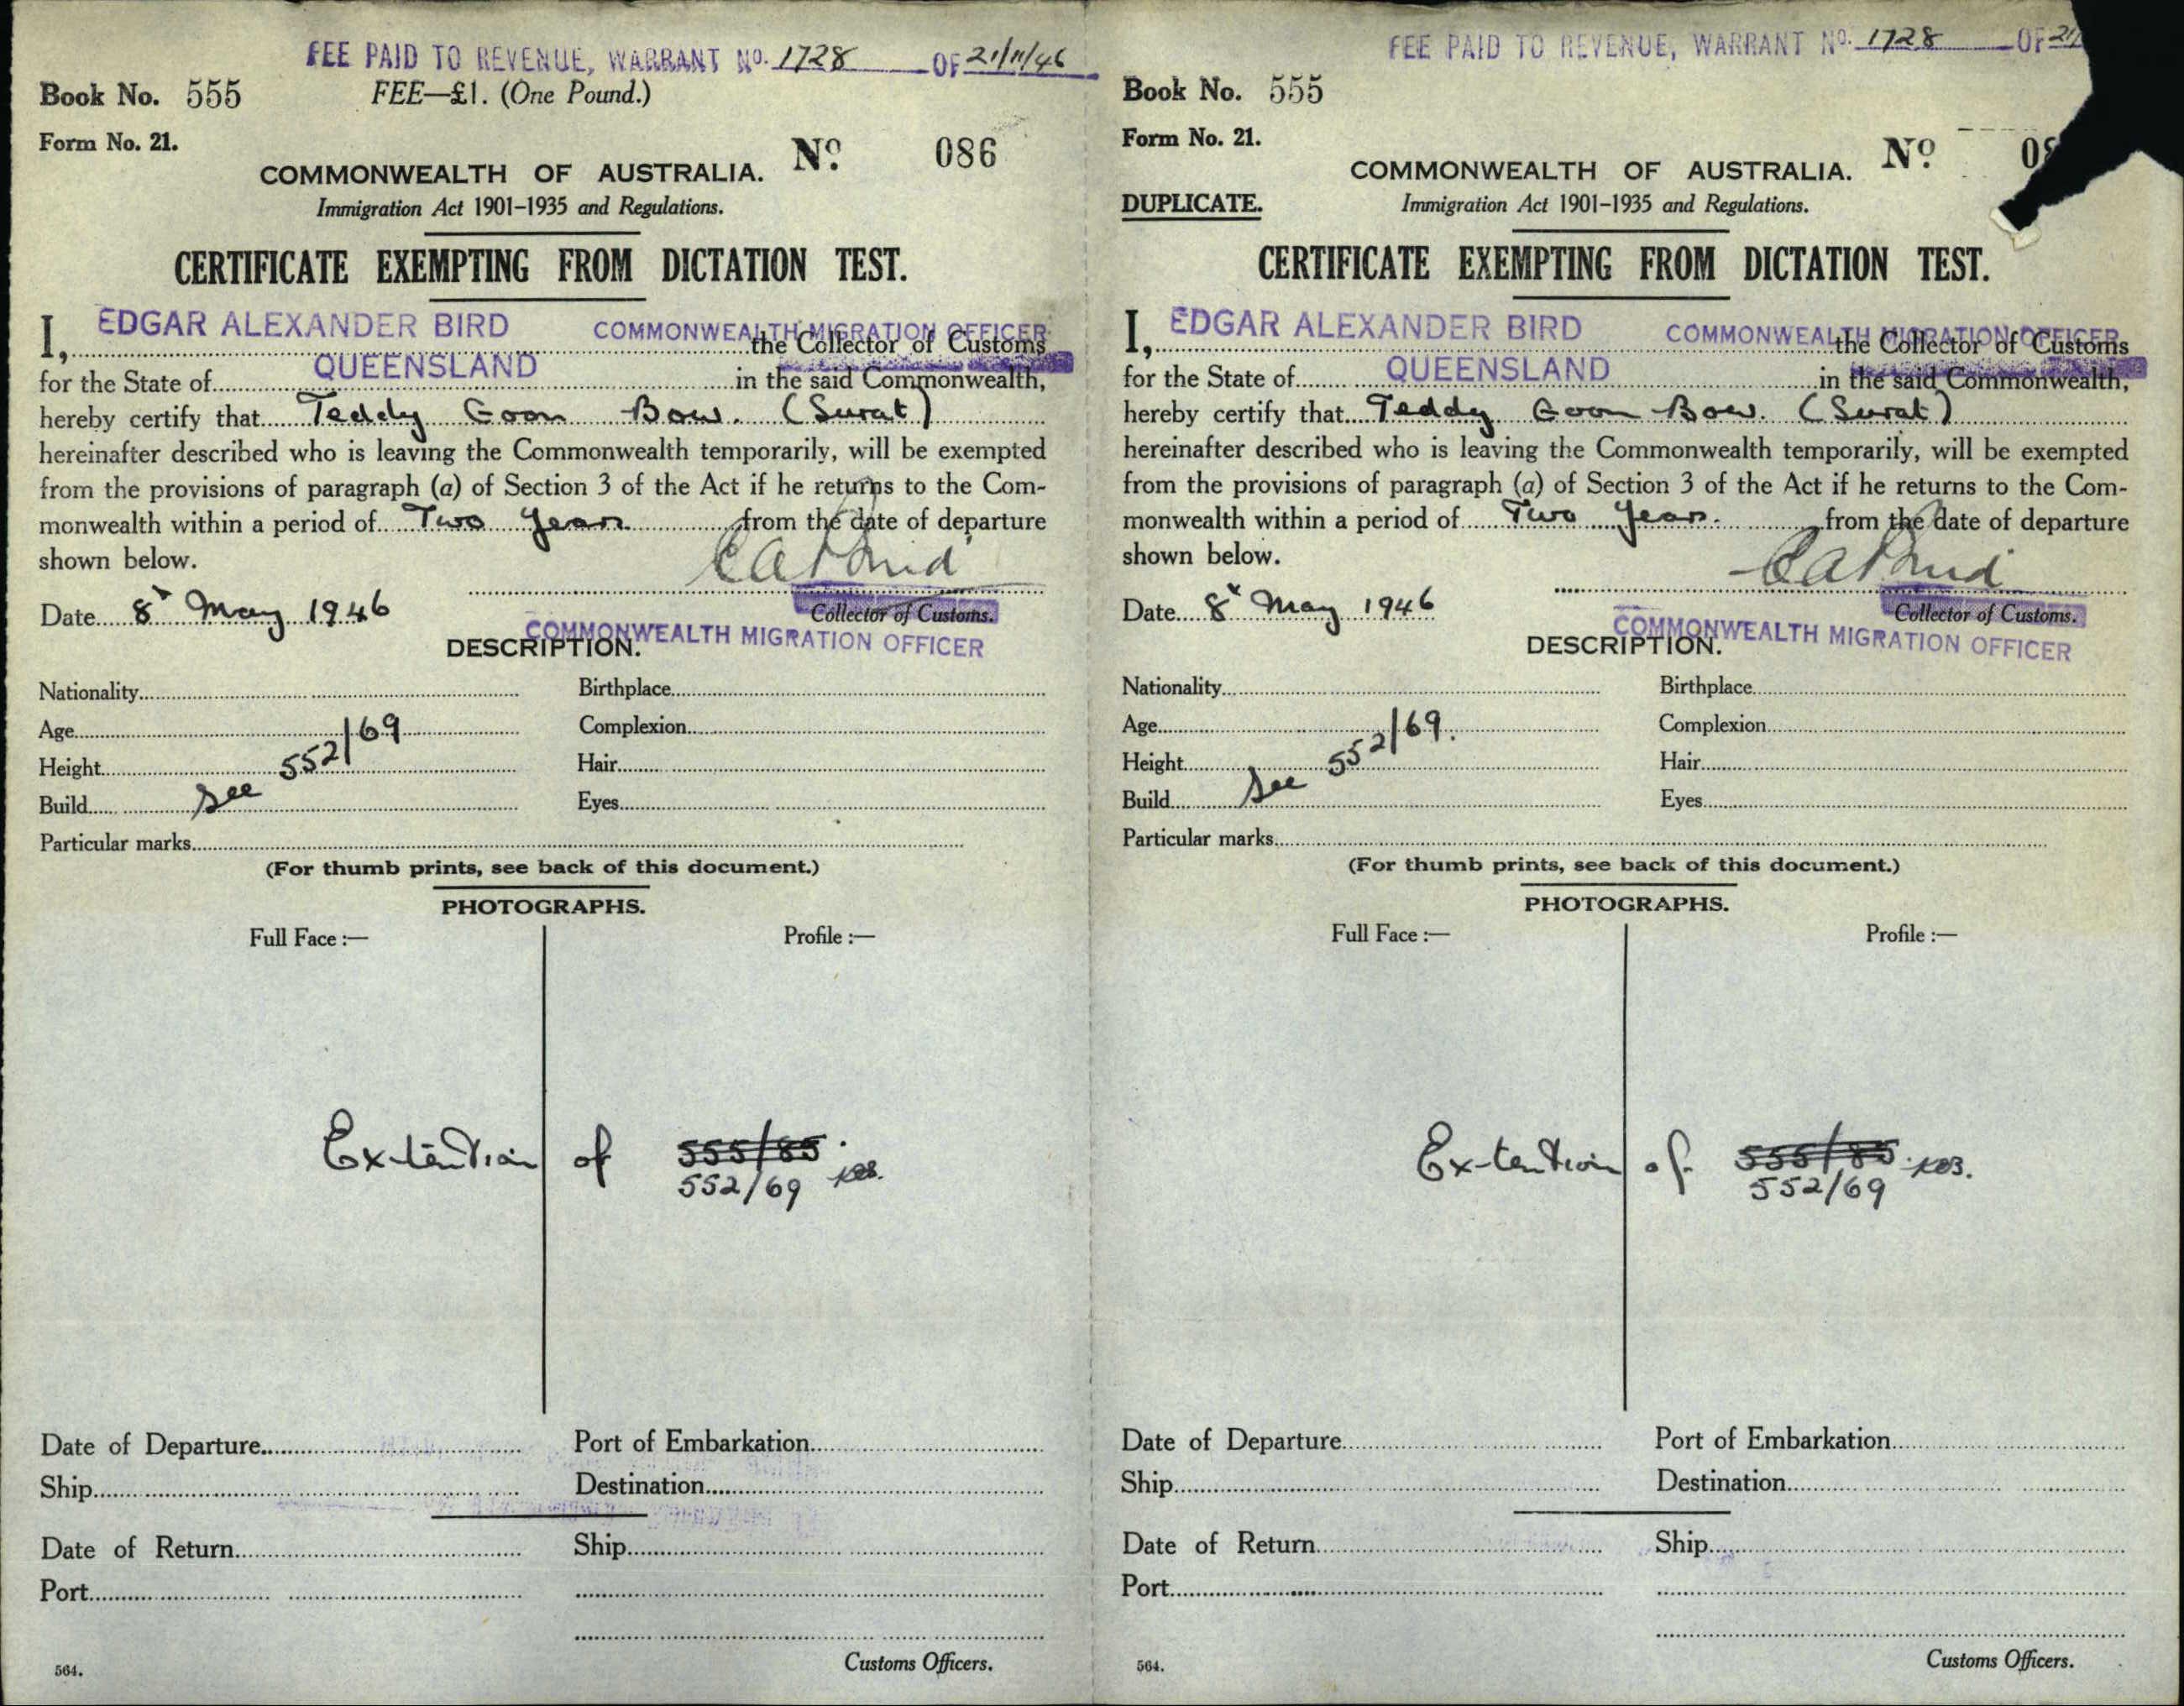 FEE PAID TO REVENUE, WARRANT No. 1728 OF 21/11/46
Book No. 555 FEE—£1. (One Pound.)
Form No. 21.
No. 086
COMMONWEALTH OF AUSTRALIA.
Immigration Act 1901–1935 and Regulations.
CERTIFICATE EXEMPTING FROM DICTATION TEST.
I, EDGAR ALEXANDER BIRD COMMONWEALTH MIGRATION OFFICER the Collector of Customs
for the State of QUEENSLAND in the said Commonwealth,
hereby certify that Teddy Goon Bow. (Surat)
hereinafter described who is leaving the Commonwealth temporarily, will be exempted
from the provisions of paragraph (a) of Section 3 of the Act if he returns to the Com-
monwealth within a period of Two Years from the date of departure
shown below.
EABird
Date 8th May 1946 Collector of Customs.
COMMONWEALTH MIGRATION OFFICER
DESCRIPTION.
Nationality Birthplace
Age Complexion
Height Hair
Build See 552/69 Eyes
Particular marks
(For thumb prints, see back of this document.)
PHOTOGRAPHS.
Full Face :— Profile :—
Extention of 555/85.
552/69
Date of Departure Port of Embarkation
Ship Destination
Date of Return Ship
Port
564. Customs Officers.
FEE PAID TO REVENUE, WARRANT No. 1728 OF 21/
Book No. 555
Form No. 21.
No. 08
COMMONWEALTH OF AUSTRALIA.
DUPLICATE. Immigration Act 1901–1935 and Regulations.
CERTIFICATE EXEMPTING FROM DICTATION TEST.
I, EDGAR ALEXANDER BIRD COMMONWEALTH MIGRATION OFFICER the Collector of Customs
for the State of QUEENSLAND in the said Commonwealth,
hereby certify that Teddy Goon Bow. (Surat)
hereinafter described who is leaving the Commonwealth temporarily, will be exempted
from the provisions of paragraph (a) of Section 3 of the Act if he returns to the Com-
monwealth within a period of Two Years. from the date of departure
shown below.
EABird
Date 8th May 1946 Collector of Customs.
COMMONWEALTH MIGRATION OFFICER
DESCRIPTION.
Nationality Birthplace
Age Complexion
Height Hair
Build See 552/69. Eyes
Particular marks
(For thumb prints, see back of this document.)
PHOTOGRAPHS.
Full Face :— Profile :—
Extention of 555/85.
552/69
Date of Departure Port of Embarkation
Ship Destination
Date of Return Ship
Port
564. Customs Officers.